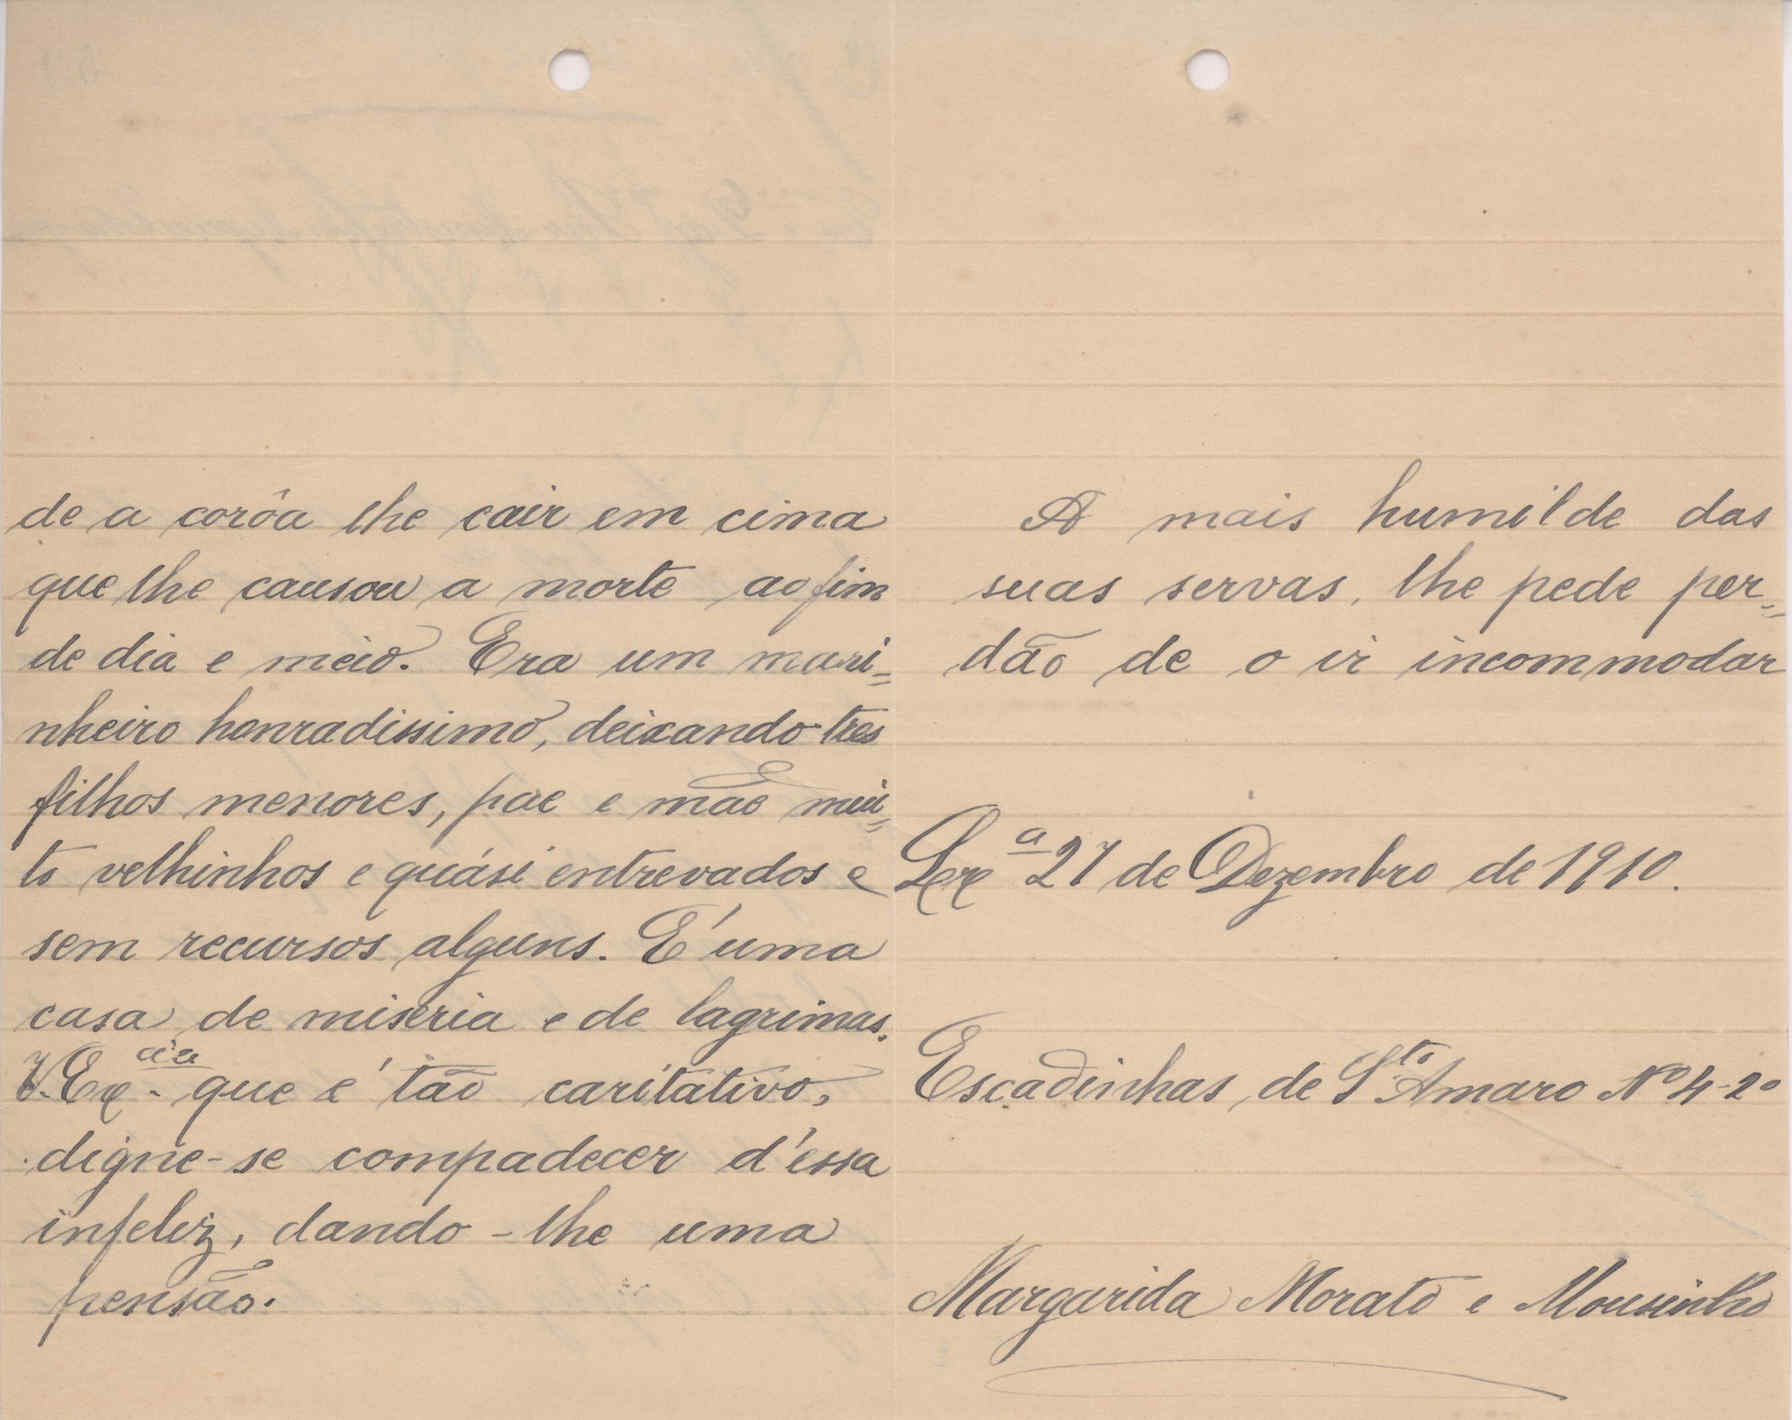 de a corôa lhe cair em cima
que lhe causou a morte ao fim
de dia e meio. Era um mari=
nheiro honradissimo, deixando tres
filhos menores, pae e mãe mui=
to velhinhos e quási entrevados e
sem recursos alguns. É uma
casa de miseria e de lagrimas.
V. Ex.cia que é tão caritativo,
digne-se compadecer d'éssa
infeliz, dando-lhe uma
pensão.
A mais humilde das
suas servas, lhe pede per=
dão de o ir incommodar
Lxa 27 de Dezembro de 1910.
Escadinhas, de Sto Amaro No 4-2o
Margarida Morato e Mousinho